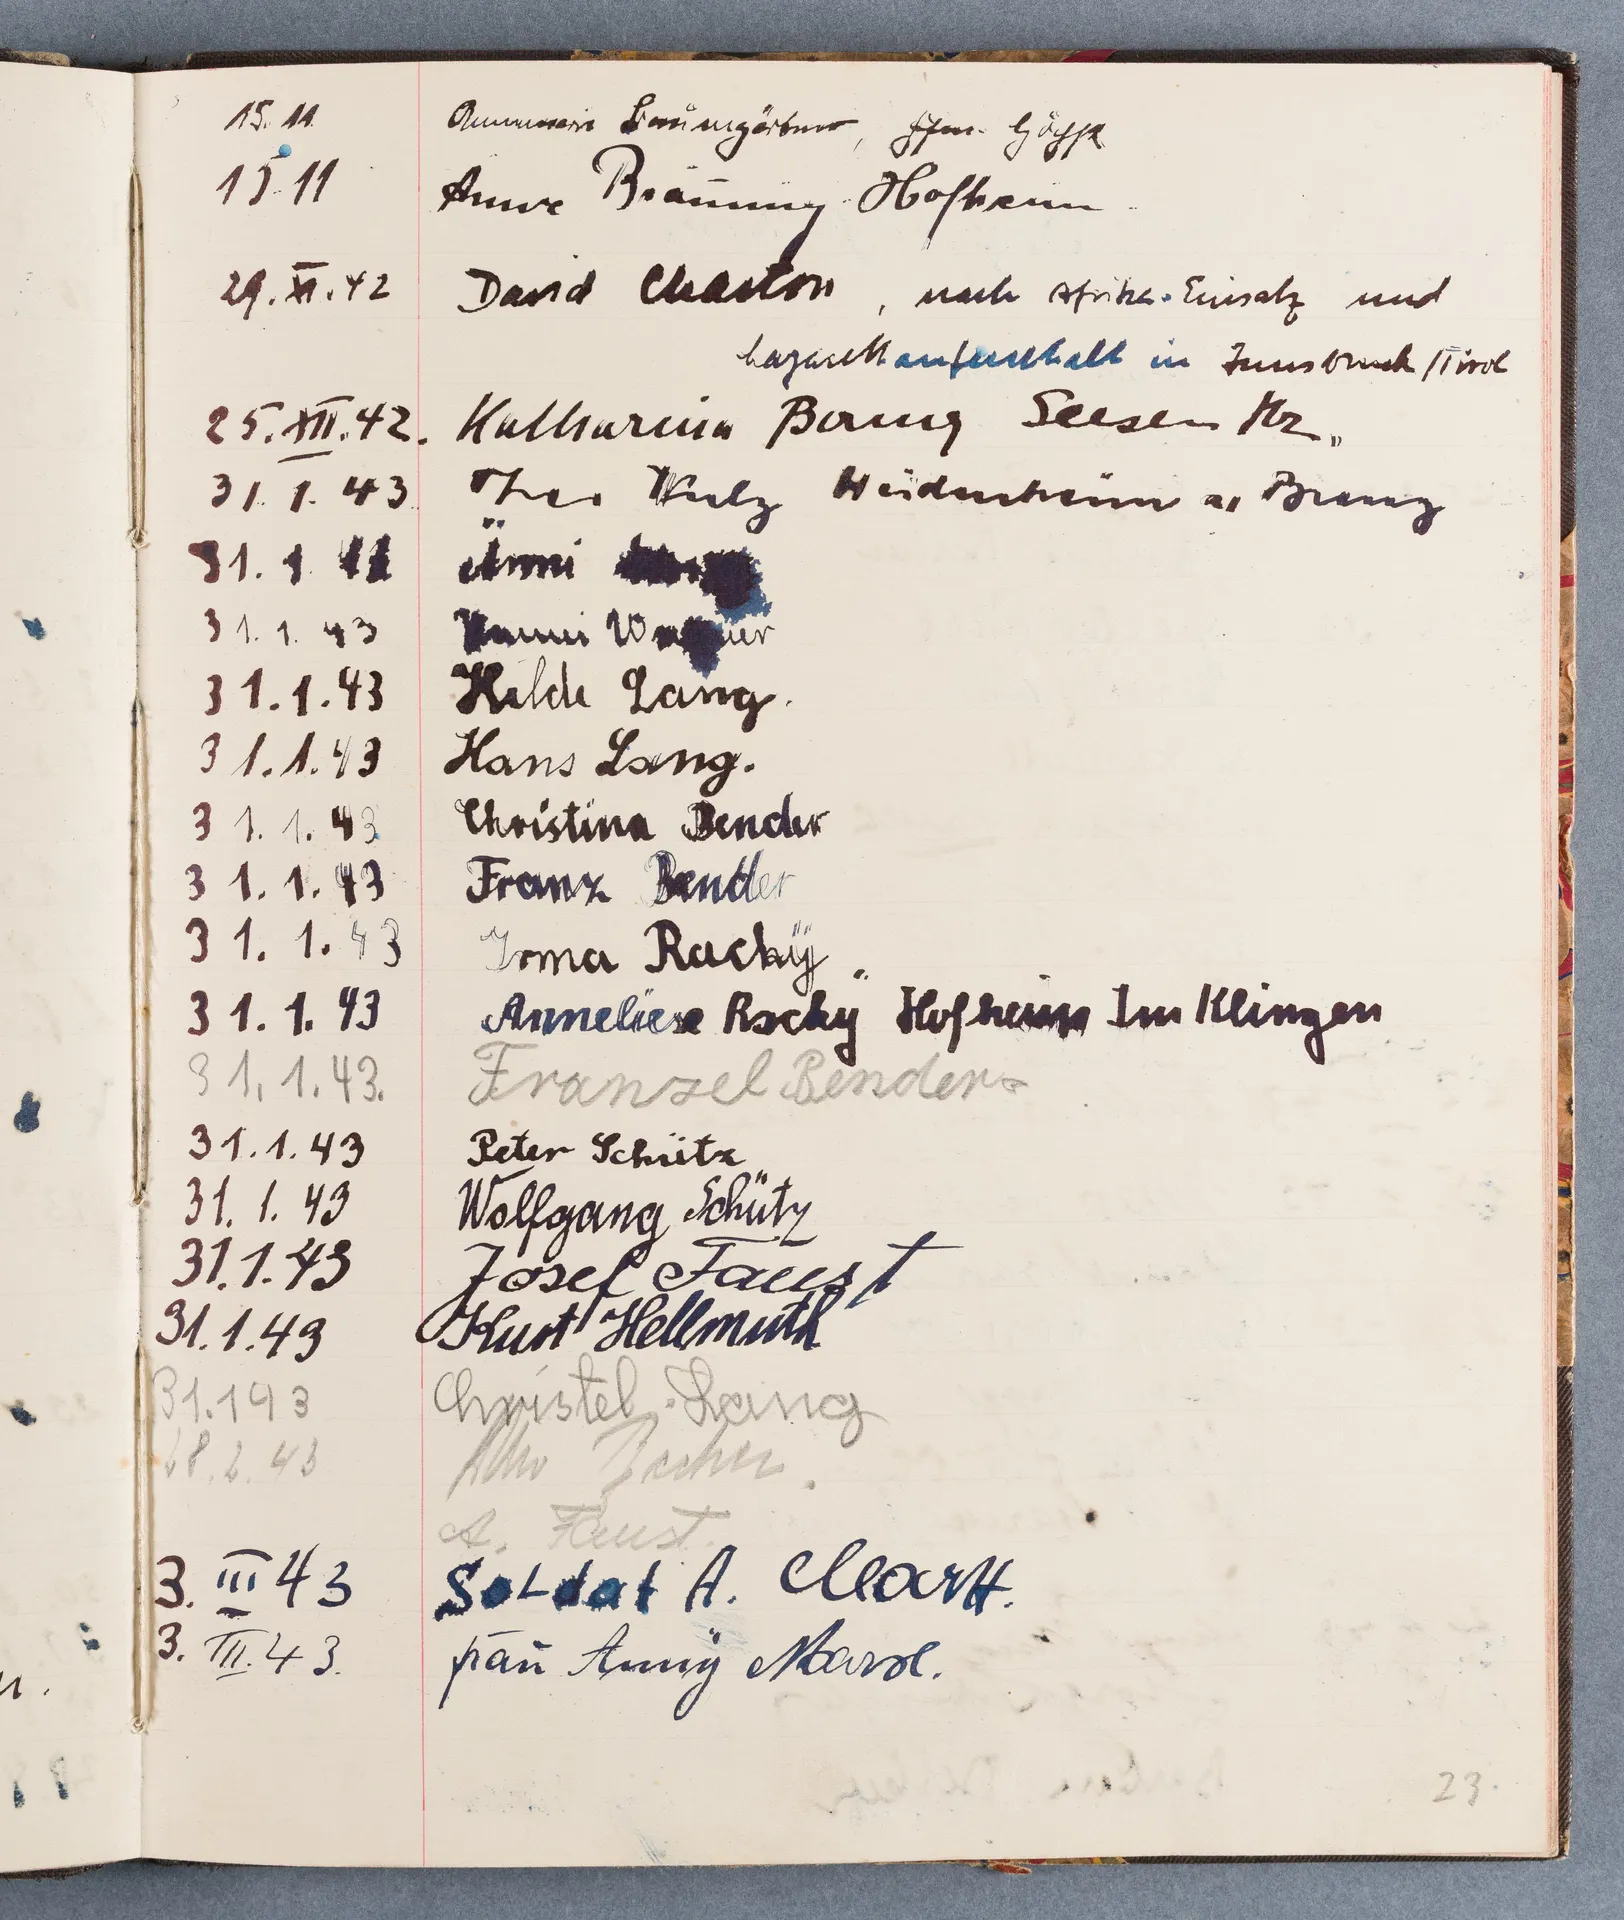 15.11 Annemarie Baumgärtner, Ffm. Höchst
15.11 Anne Bräuning Hofheim
29.XI.42 David Charton, nach Afrika-Einsatz und
Lazarettaufenthalt in Innsbruck/Tirol
25.XII.42. Katharina Seesen Hz.
31.1.43 Theo Heidenheim a Brenz
31.1. Änni
31.1.43 Hanni Wagner
31.1.43 Hilde Lang.
31.1.43 Hans Lang.
31.1.43 Christina Bender
31.1.43 Franz Bender
31.1.43 Irma Rachÿ
31.1.43 Anneliese Rachÿ Hofheim Im Klingen
31.1.43. Franzel Bender
31.1.43 Peter Schütz
31.1.43 Wolfgang Schütz
31.1.43 Josef Faust
31.1.43 Kurt Hellmuth
31.143 Christel Lang
28.2.43
A. Faust.
3. III 43 Soldat A.
3. III.43. frau Annÿ
23.